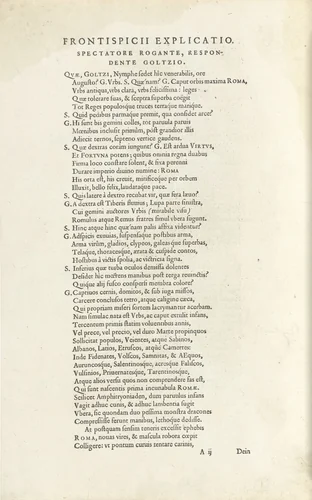 FRONTISPICII EXPLICATIO.
SPECTATORE ROGANTE, RESPON-
DENTE GOLTZIO.
QVÆ, GOLTZI, Nymphe sedet hîc venerabilis, ore
Augusto? G. Vrbs. S. Quæ nam? G. Caput orbis maxima ROMA,
Vrbs antiqua, vrbs clara, vrbs felicissima: leges
Quæ tolerare suas, & sceptra superba coëgit
Tot Reges populosque truces terraque marique.
S. Quid pedibus parmaque premit, qua consider arce?
G. Hi sunt bis gemini colles, tot paruula paruis
Mœnibus inclusit primùm, post grandior illis
Adiecit ternos, septeno vertice gaudens.
S. Quæ dextras coëunt iungunt? G. Est ardua VIRTVS,
Et FORTVNA potens; quibus omnia regna duabus
Firma loco constare solent, & fixa perenni
Durare imperio diuino numine: ROMA
His orta est, his creuit, mirificeque per orbem
Illuxit, bello felix, laudataque pace.
S. Quis latere à dextro recubat vir, quæ fera lauo?
G. A dextra est Tiberis flumus; Lupa parte sinistra,
Cui gemini auctores Vrbis (mirabile visu)
Romulus atque Remus fratres simul vbera sugunt.
S. Hinc atque hinc quænam palis affixa videntur?
G. Adspicis exuuias, suspensaque postibus arma,
Arma virûm, gladios, clypeos, galeasque superbas,
Telaque, thoracesque, erata & cuspide contos,
Hostibus à victis spolia, ac victricia signa.
S. Inferius quæ turba oculos demissa dolentes
Desidet hîc mœrens manibus post terga reuinctis?
Quique alij fusco conspersi membra colore?
G. Captiuos cernis, domitos, & sub iuga missos,
Carcere conclusos tetro, atque caligine cæca,
Qui propriam miseri sortem lacrymantur acerbam.
Nam simulac nata est Vrbs, ac caput extulit infans,
Tercentum primis statim voluentibus annis,
Vel prece, vel precio, vel duro Marte propinquos
Sollicitat populos, Veientes, atque Sabinos,
Albanos, Latios, Etruscos, atque Camertes:
Inde Fidenates, Volscos, Samnitas, & AEquos,
Auruncosque, Salentinosque, acrosque Faliscos,
Vulsinios, Priuernatesque, Tarentinosque,
Atque alios versu quos non comprendere fas est,
Qui sunt nascentis prima incunabula ROMÆ.
Scilicet Amphitryoniaden, dum paruulus infans
Vagit adhuc cunis, & adhuc lambentia sugit
Vbera, sic quondam duo pessima monstra dracones
Compressisse ferunt manibus, lethoque dedisse.
At postquam sensim teneris excessit ephebis
ROMA, nouas vires, & mascula robora cœpit
Colligere: vt pontum curuis tentare carinis,
A ij Dein